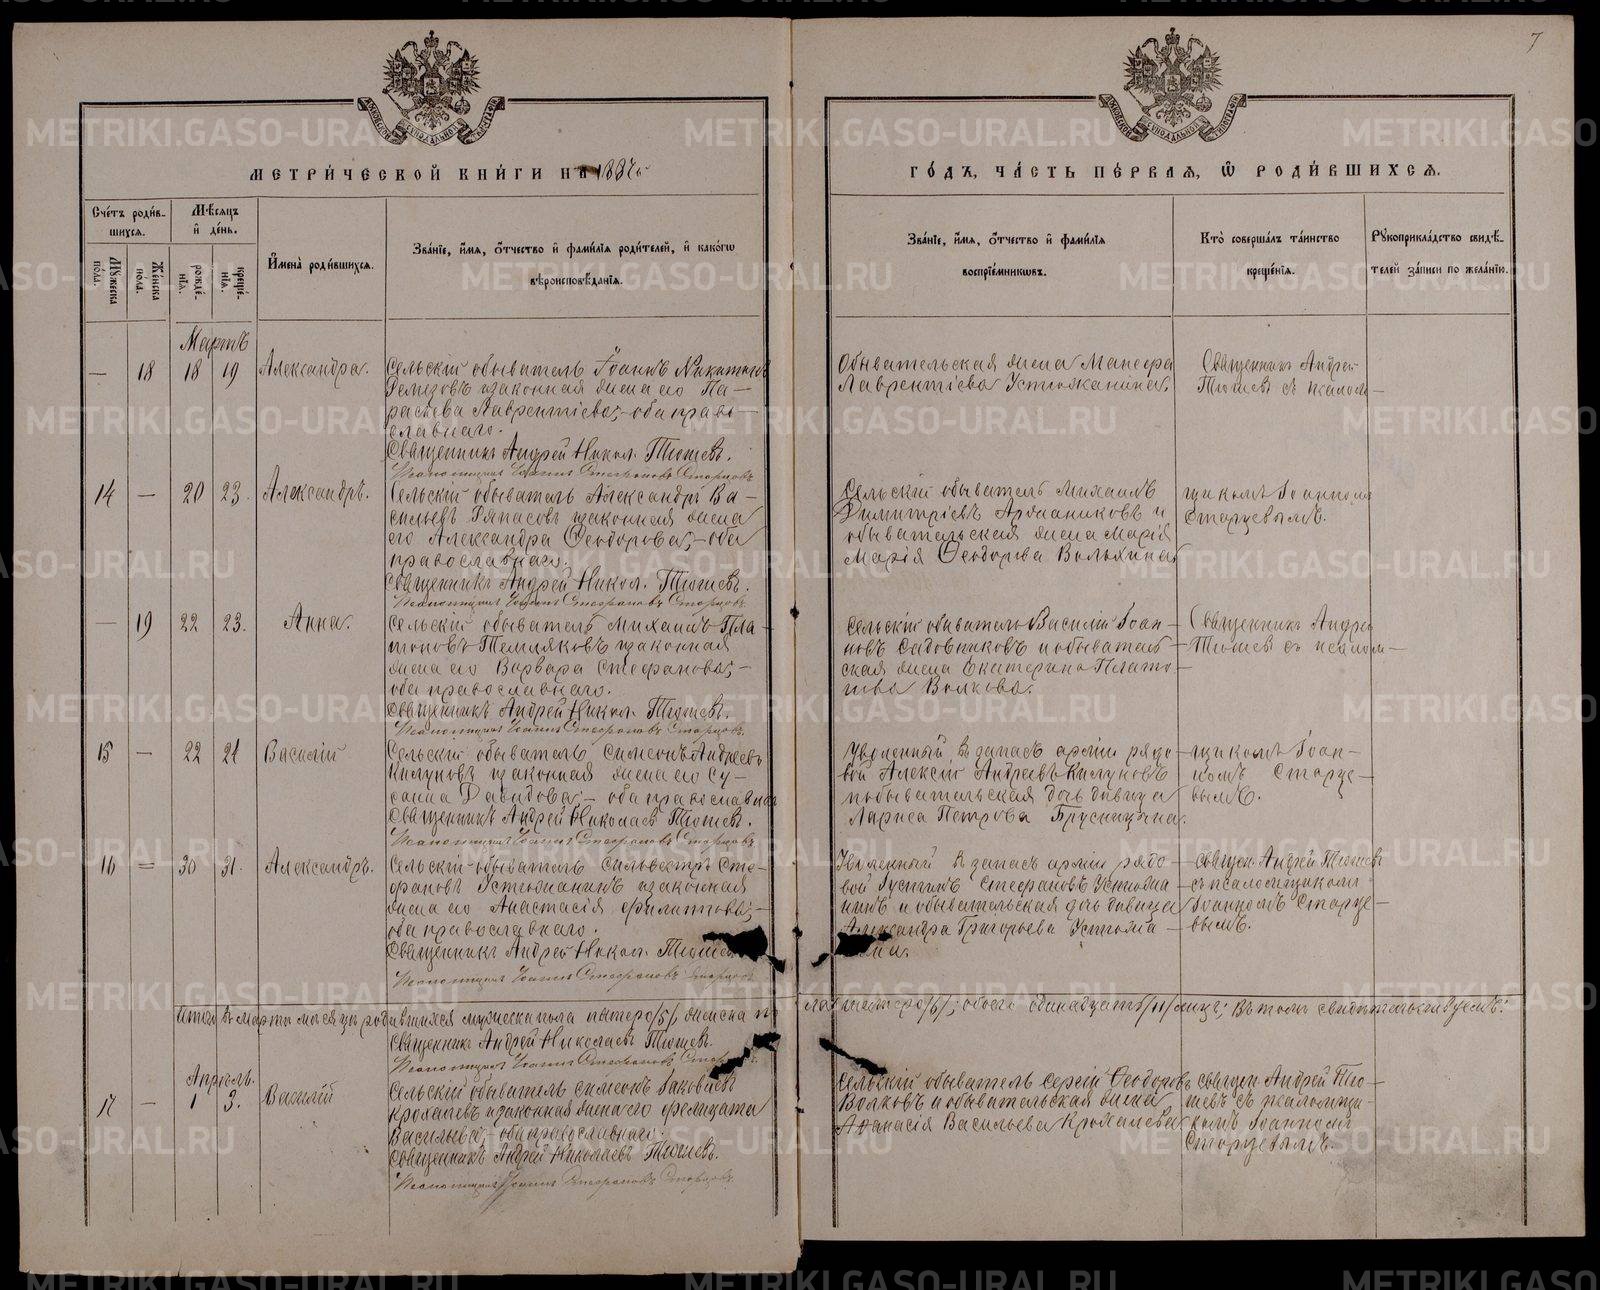 7
МЕТРИ́ЧЕСКОЙ КНИ́ГИ НА 1887 ГО́ДЪ, ЧА́СТЬ ПЕ́РВАЯ, Ѡ РОДИ́ВШИХСЯ.
Сче́тъ роди́в-
шихся.
Му́жеска по́ла.
Же́нска по́ла.
Мѣ́сяцъ
и де́нь.
рожде́-
нія.
креще́-
нія.
Имена̀ роди́вшихся.
Зва́ніе, и́мя, о́тчество и фами́лія роди́телей, и како́гѡ
вѣроисповѣ́данія.
Зва́ніе, и́мя, о́тчество и фами́лія
воспріе́мниковъ.
Кто̀ соверша́лъ та́инство
креще́нія.
Рукоприкла́дство свидѣ́-
телей за́писи по жела́нію.
Мартъ
— 18 18 19 Александра.
Сельскій обыватель Іоаннъ Никитинъ
Ремезовъ и законная жена его Па-
раскева Лаврентіева; оба право-
славнаго.
Священникъ Андрей Никол. Тюшевъ.
Псаломщикъ Іоаннъ Стефановъ Старцевъ
Обывательская жена
Лаврентіева Устюжанина.
Священникъ Андрей
Тюшевъ съ псалом-
14 — 20 23. Александръ.
Сельскій обыватель Александръ Ва-
сильевъ и законная жена
его Александра Ѳеодорова; оба
православнаго.
Священникъ Андрей Никол. Тюшевъ.
Псаломщикъ Іоаннъ Стефановъ Старцевъ
Сельскій обыватель Михаилъ
Димитріевъ и
обывательская жена Марія
Марія Ѳеодорова
щикомъ Іоанномъ
Старцевымъ.
— 19 22 23. Анна.
Сельскій обыватель Михаилъ Пла-
тоновъ Темляковъ и законная
жена его Варвара Стефанова;
оба православнаго.
Священникъ Андрей Никол. Тюшевъ.
Псаломщикъ Іоаннъ Стефановъ Старцевъ.
Сельскій обыватель Василій Іоан-
новъ Садовниковъ и обыватель-
ская жена Екатерина Плато-
нова Волкова.
Священникъ Андрей
Тюшевъ съ псалом-
15 — 22 24 Василій
Сельскій обыватель Симеонъ Андреевъ
Килуновъ и законная жена его Су-
санна Давидова; оба православнаго
Священникъ Андрей Николаевъ Тюшевъ.
Псаломщикъ Іоаннъ Стефановъ Старцевъ.
Уволенный въ запасъ арміи рядо-
вой Алексій Андреевъ Килуновъ
и обывательская дочь девица
Лариса Петрова Брусницына.
щикомъ Іоан-
номъ Старце-
вымъ.
16 — 30 31. Александръ.
Сельскій обыватель Сильвестръ Сте-
фановъ Устюжанинъ и законная
жена его Анастасія Филиппова;
оба православнаго.
Священникъ Андрей Никол. Тюшевъ
Псаломщикъ Іоаннъ Стефановъ Старцевъ
Уволенный въ запасъ арміи рядо-
вой Іустинъ Стефановъ Устюжа-
нинъ и обывательская дочь девица
Александра Григорьева Устюжа-
нина.
Священ. Андрей Тюшевъ
съ псаломщикомъ
Іоанномъ Старце-
вымъ.
Итого въ марте месяце родившихся мужеска пола пятеро /5/, женска по-
ла шестеро /6/; обоего одинадцать /11/ лицъ; въ томъ свидетельствуемъ:
Священникъ Андрей Николаевъ Тюшевъ.
Псаломщикъ Іоаннъ Стефановъ Старцевъ.
Апрель.
17 — 1 3. Василій
Сельскій обыватель Симеонъ Іаковлевъ
Крохалевъ и законная жена его Фелицата
Васильева; оба православнаго.
Священникъ Андрей Николаевъ Тюшевъ.
Псаломщикъ Іоаннъ Стефановъ Старцевъ.
Сельскій обыватель Сергій Ѳеодоровъ
Волковъ и обывательская жена
Аѳанасія Васильева Крохалева
Священ. Андрей Тю-
шевъ съ псаломщи-
комъ Іоанномъ
Старцевымъ.
METRIKI.GASO-URAL.RU